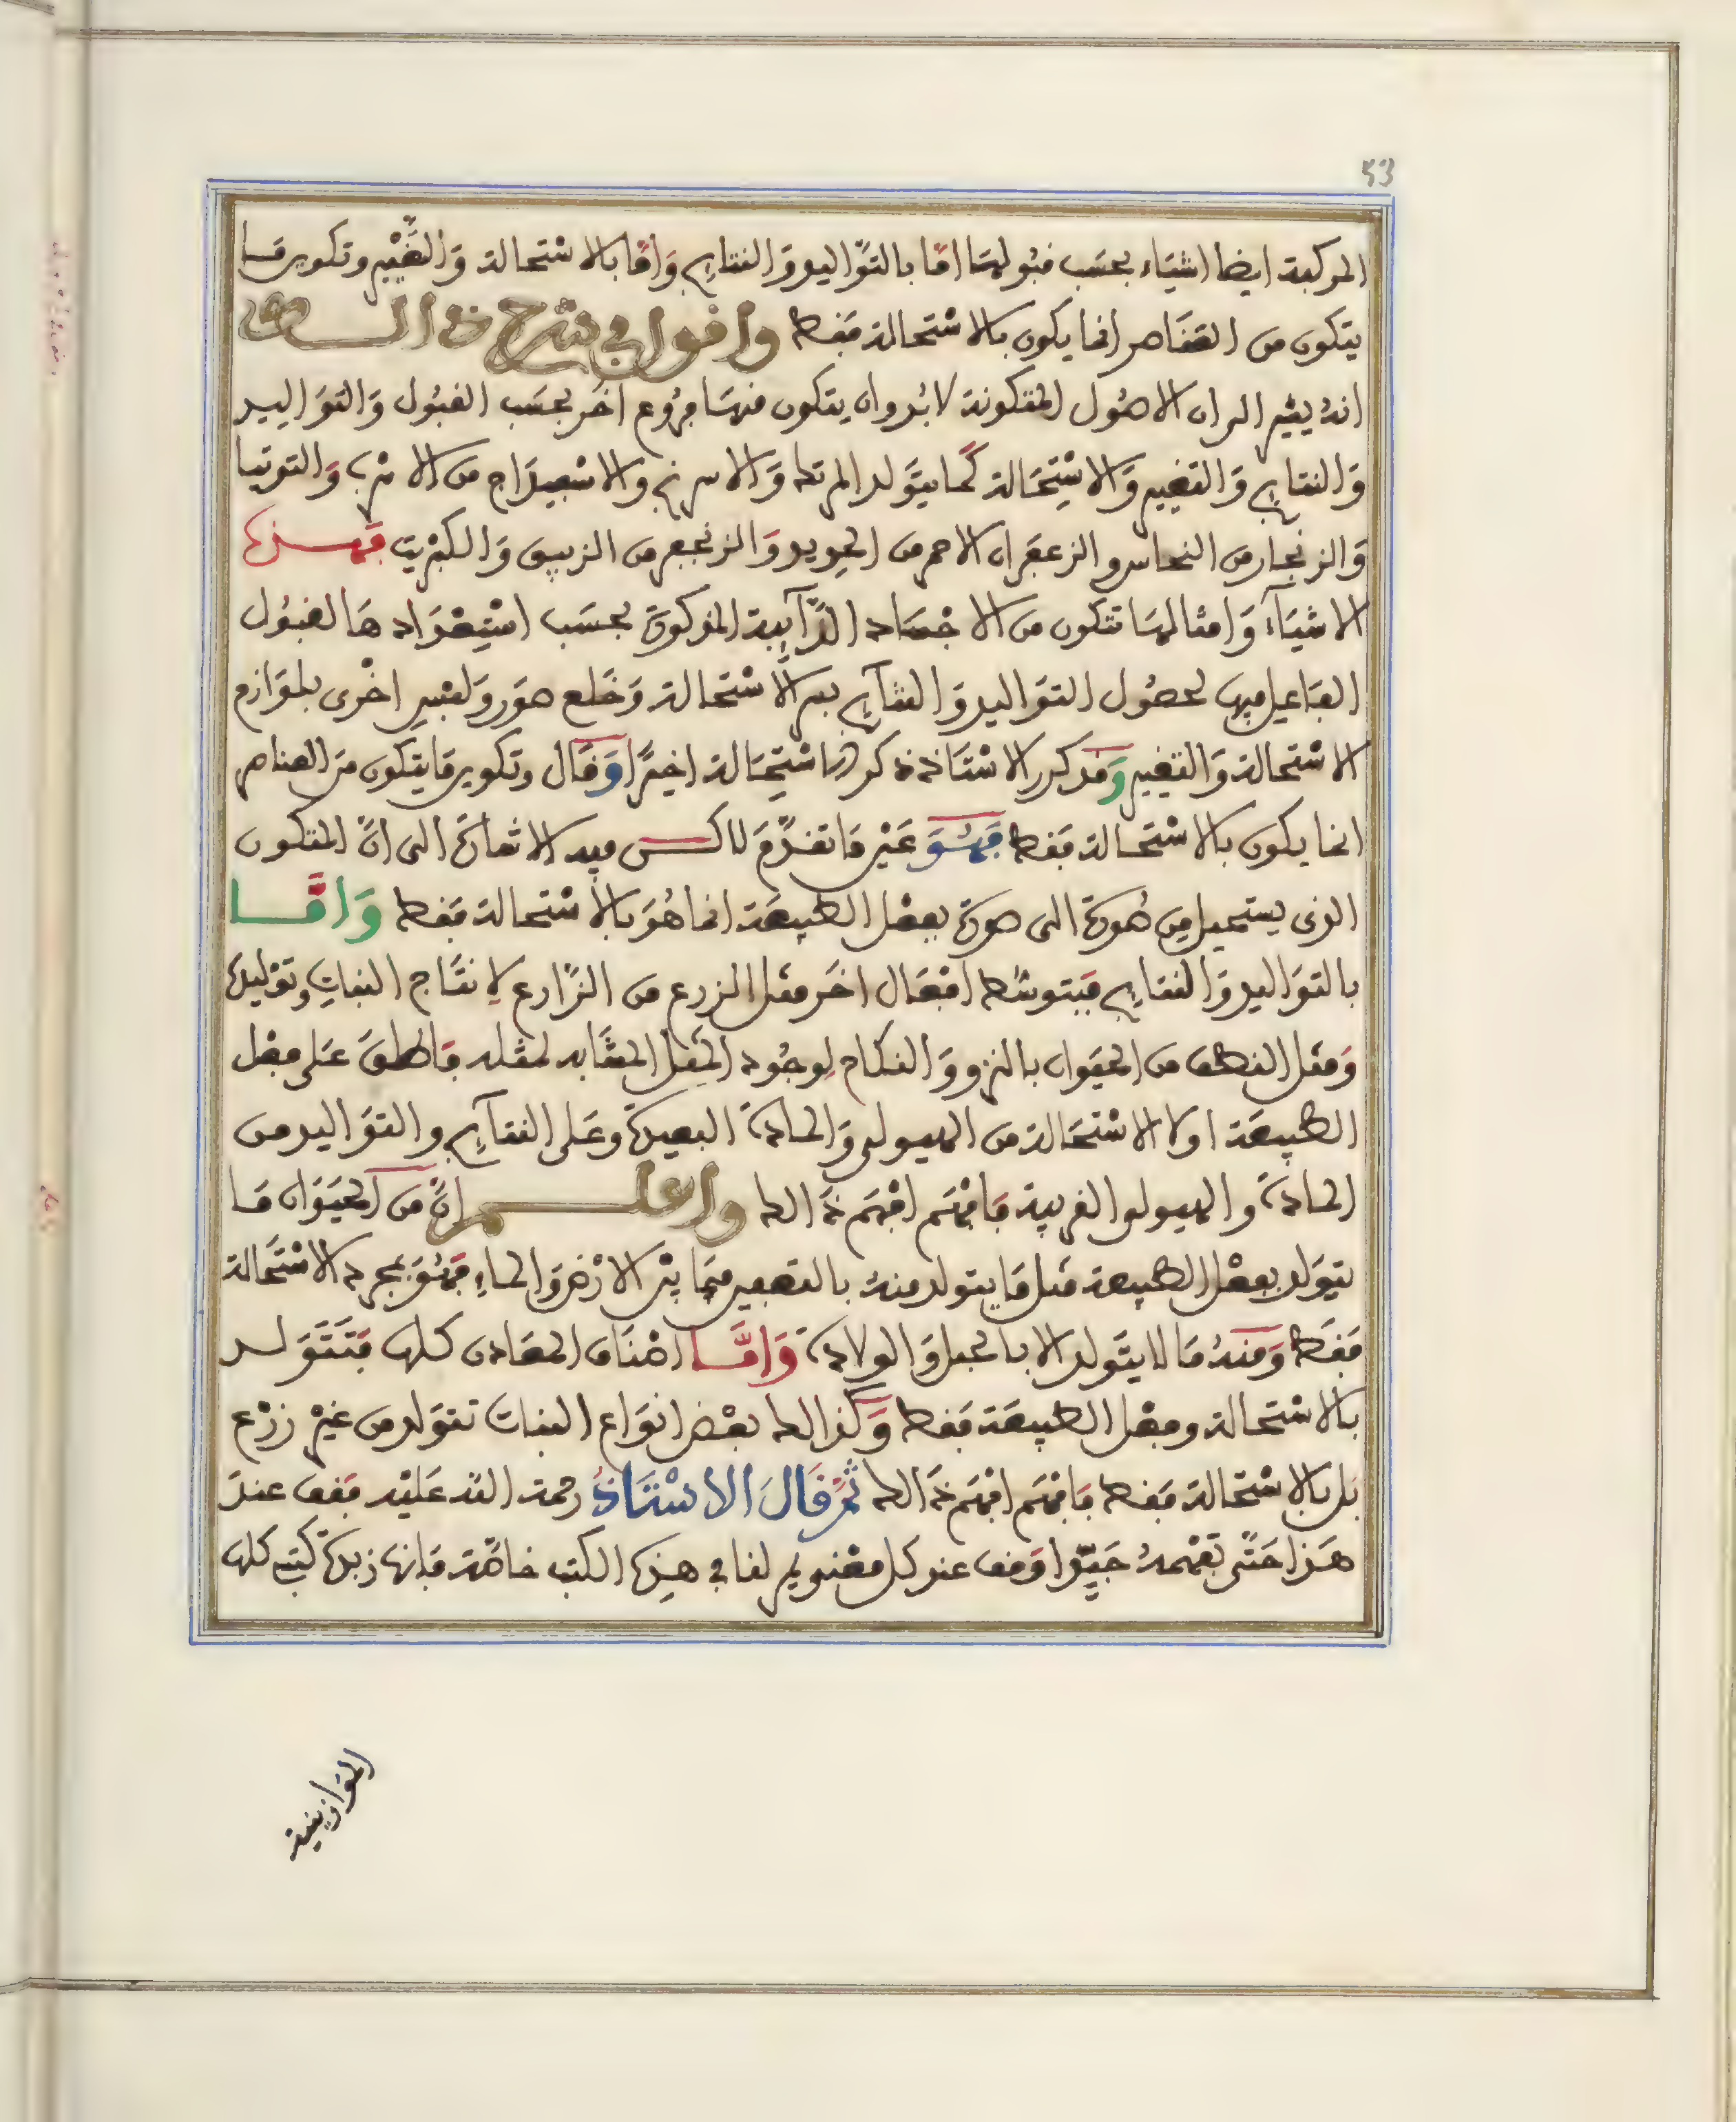 53
المركبة ايضا اشياء بحسَب قبُولهَا امَّا بالتوَّاليد وَالنتايج وَامَّا بالاسْتحالة وَالتَّغْيير وتكوين مَا
يتكون من العنَاصر انما يكون بالاسْتحالة فقط واقول في شرح ذالك
انهُ يشير الى ان الاصُول المتكونة لابُد وان يتكون منهَا فرُوع اخَر بحسَب القبُول وَالتوَاليد
وَالنتايج وَالتغيير وَالاسْتِحَالة كمَا يتَولد المرتك وَالاسرنج والاسْفيدَاج من الاسْرب وَالتوتيا
وَالزنجار من النحاس والزعفَران الاحمر من الحديد وَالزنجفر من الزيبق وَالكبْريت فهذه
الاشيَآء وَامثالهَا تتكون من الاجْسَاد الذَّآيبة المذكورة بحسَب اسْتِعْدَادهَا لقبُول
الفَاعيل فيها لحصُول التوَاليد وَالنتآيج بسر الاسْتحالة وَخَلع صوَر وَلبْس اخْرى بلوَازم
الاسْتحالة وَالتغيير وَقد كرر الاسْتَاذ ذكر الاسْتِحَالة اخيرًا وَقَال وتكوين مَا يتكون من العناصر
انما يكون بالاسْتحَالة فقط فهُوَ غَيْر مَا تقدَّمَ لاكن فيه الاشارَة الى انَّ المتكون
الذى يستحيل من صُورة الى صورة بفعْل الطبيعَة انما هُوَ بالاسْتحالة فقط وَامَّا
بالتوَاليد وَالنتايج فبتوسُّط افعَال اخَر مثل الزرع من الزَّارع لانتَاج النباتِ وتوْليده
وَمثل النطف من الحيَوان بالنزو وَالنكاح لوجُود المثل المشَابه لمثله فاطلقَ عَلى فعْل
الطبيعَة اولا الاسْتحَالة من الهيولى وَالمادة البعيدة وعَلى النتآيج والتوَاليد من
المادة والهيولى القريبة فافهَم افهَم ذَالك واعلم انَّ من الحيَوَان مَا
يتوَلد بفعْل الطبيعة مثل مَا يتولد منهُ بالتعفين فيمَا بيْن الارْض وَالماءِ فهُوَ بمجرد الاسْتَحالة
فقَط وَمنهُ مَا لا يتَولد الا بالحبل وَالولادة وَامَّا اصْنَاف المعَادن كلها فتَتَوَلد
بالاسْتحالة وفعْل الطبيعَة فقط وَكذالك بعْض انوَاع النبات تتوَلد من غيْر زرْع
بَل بالاسْتحَالة فقط فافهَم افهَم ذَالك ثمَّ قَالَ الاسْتَاذُ رحمة الله عَليْه فقف عندَ
هَذا حَتَّى تفهَمهُ جَيِّدا وَقف عند كل مفْنَ لنا في هذه الكتب خاصَّة فانها زبدة كتب كلها
الموَازينية